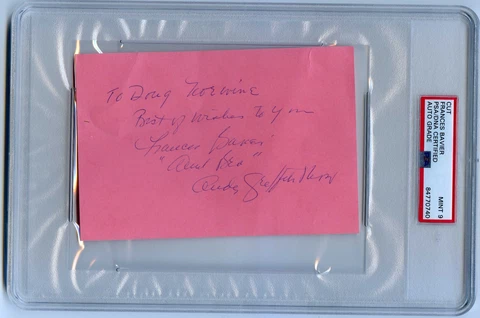 To Doug Norwine
Best of Wishes to you
Frances Bavier
"Aunt Bea"
Andy Griffith Show
CUT
FRANCES BAVIER
PSA/DNA CERTIFIED
AUTO GRADE
MINT 9
84770740